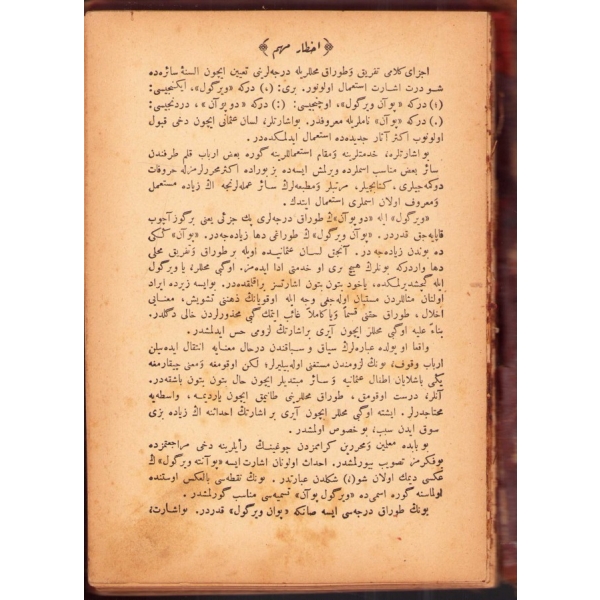 ﴿ اخطار مهم ﴾
اجزای کلامی تفریق و طوراق محللریله درجه‌لرینی تعیین ایچون السنهٔ سائره‌ده
شو درت اشارت استعمال اولونور. بری: (،) درکه «ویرگول»، ایکنجیسی:
(؛) درکه «پوآن ویرگول»، اوچنجیسی: (:) درکه «دو پوآن»، دردنجیسی:
(.) درکه «پوآن» ناملریله معروفدر. بو اشارتلر، لسان عثمانی ایچون دخی قبول
اولونوب اکثر آثار جدیده‌ده استعمال ایدلمکده‌در.
بو اشارتلره، خدمتلرینه و مقام استعماللرینه گوره بعض ارباب قلم طرفندن
سائر بعض اسملرده ویرلمش ایسه‌ده بز بوراده اکثر محررلرمزله حروفات
دوکمه‌جیلری، کتابجیلر، مرتبلر و مطبعه‌لرڭ سائر عمله‌لرنجه اڭ زیاده مستعمل
و معروف اولان اسملری استعمال ایتدك.
«ویرگول» ایله «دو پوآن»ڭ طوراق درجه‌لری پك جزئی یعنی بر گوز آچوب
قاپایه‌جق قدردر. «پوآن ویرگول»ڭ طوراغی دها زیاده‌جه‌در. «پوآن»ڭکی
ده بوندن زیاده‌جه‌در. آنجق لسان عثمانیده اویله بر طوراق و تفریق محلی
دها واردرکه بونلرڭ هیچ بری او خدمتی ادا ایده‌مز. اوگبی محللر، یا ویرگول
ایله گچشدیرلمکده، یاخود بتون بتون اشارتسز براقلمقده‌در. بو ایسه زیرده ایراد
اولنان مثاللردن مستبان اوله‌جغی وجه ایله اوقویانڭ ذهنی تشویش، معنایی
اخلال، طوراق حقنی قسماً و یا کاملاً غائب ایتمك گبی محذورلردن خالی دگلدر.
بناءً علیه اوگبی محللر ایچون آیری بر اشارتڭ لزومی حس ایدلمشدر.
واقعا او یولده عباره‌لرڭ سیاق و سباقندن درحال معنایه انتقال ایده‌بیلن
ارباب وقوف، بونڭ لزومندن مستغنی اوله‌بیلیرلر؛ لکن اوقومغه و معنی چیقارمغه
یڭی باشلایان اطفال عثمانیه و سائر مبتدیلر ایچون حال بتون بتون باشقه‌در.
آنلر، درست اوقومق، طوراق محللرینی طانیمق ایچون یاردیمه، واسطه‌یه
محتاجدرلر. ایشته اوگبی محللر ایچون آیری بر اشارتڭ احداثنه اڭ زیاده بزی
سوق ایدن سبب، بو خصوص اولمشدر.
بو بابده معلمین و محررین کرامزدن چوغینڭ رأیلرینه دخی مراجعتمزده
بو فکرمز تصویب بیورلمشدر. احداث اولونان اشارت ایسه «پوآنته ویرگول»ڭ
عکسی دیمك اولان شو (،) شکلدن عبارتدر. بونڭ نقطه‌سی بالعکس اوستنده
اولماسنه گوره اسمی ده «ویرگول پوآن» تسمیه‌سی مناسب گورلمشدر.
بونڭ طوراق درجه‌سی ایسه صانکه «پوآن ویرگول» قدردر. بو اشارت،